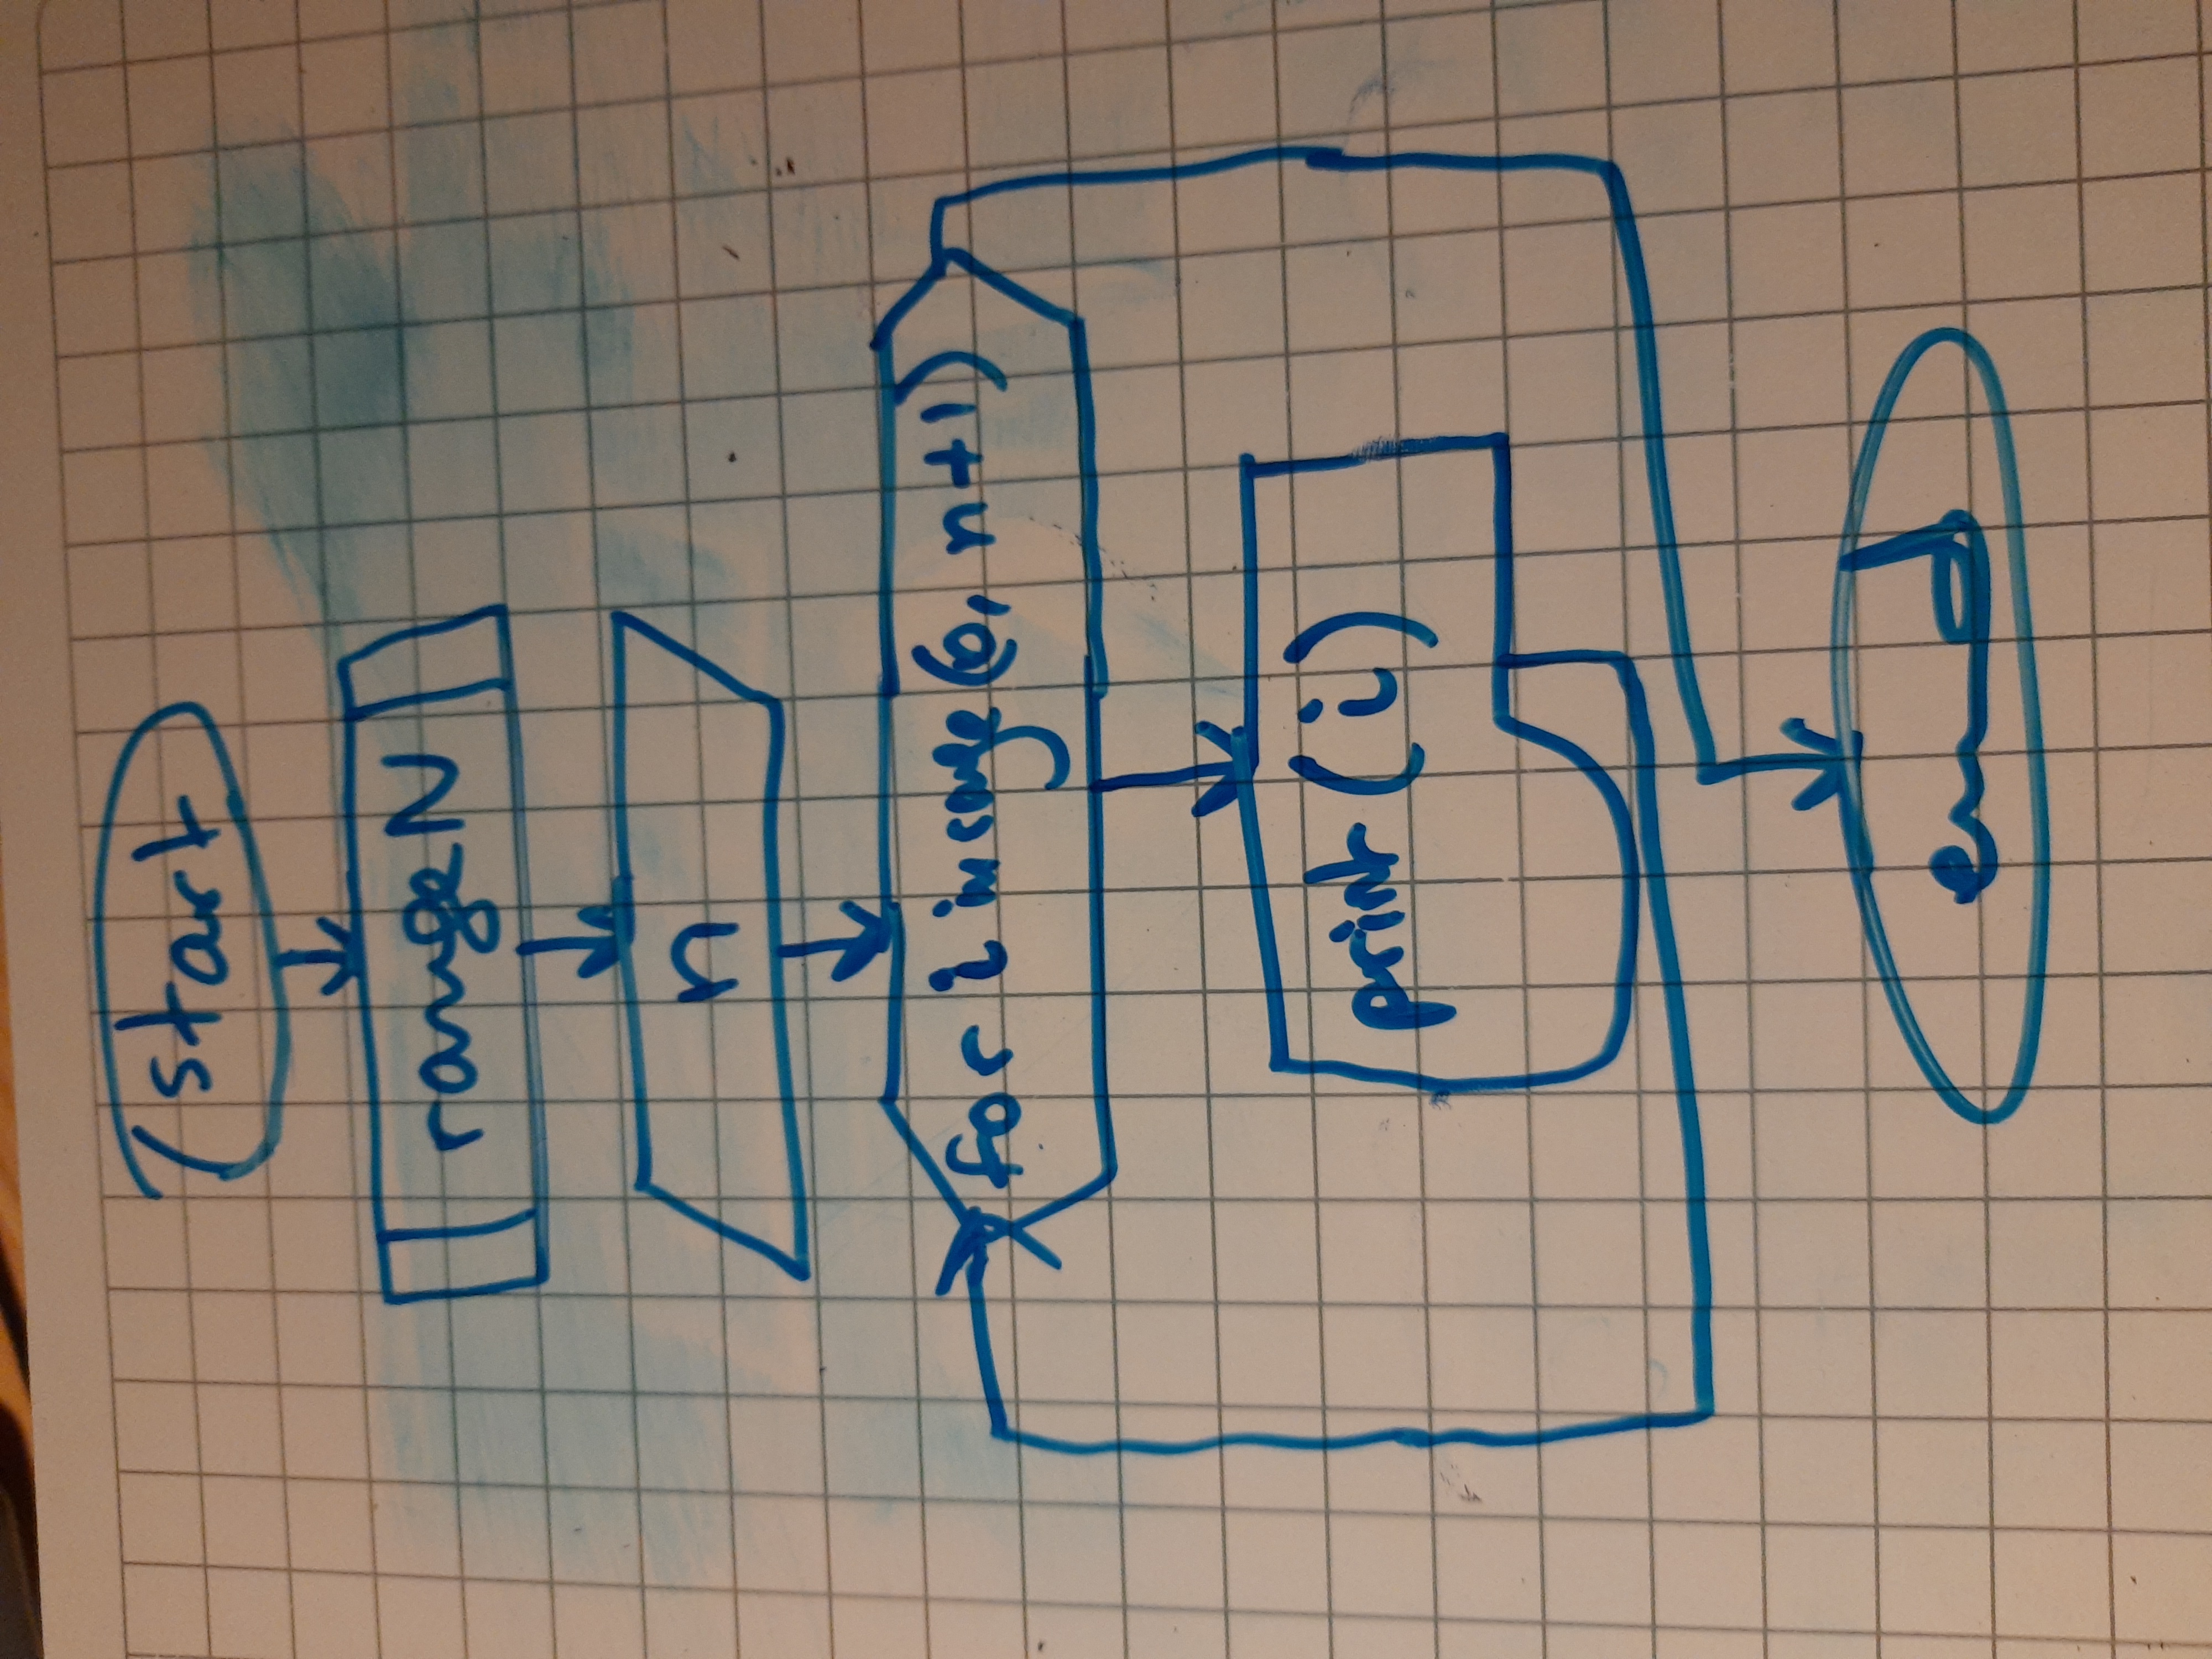 start
rangeN
n
for i in range (0, n+1)
print (i)
end